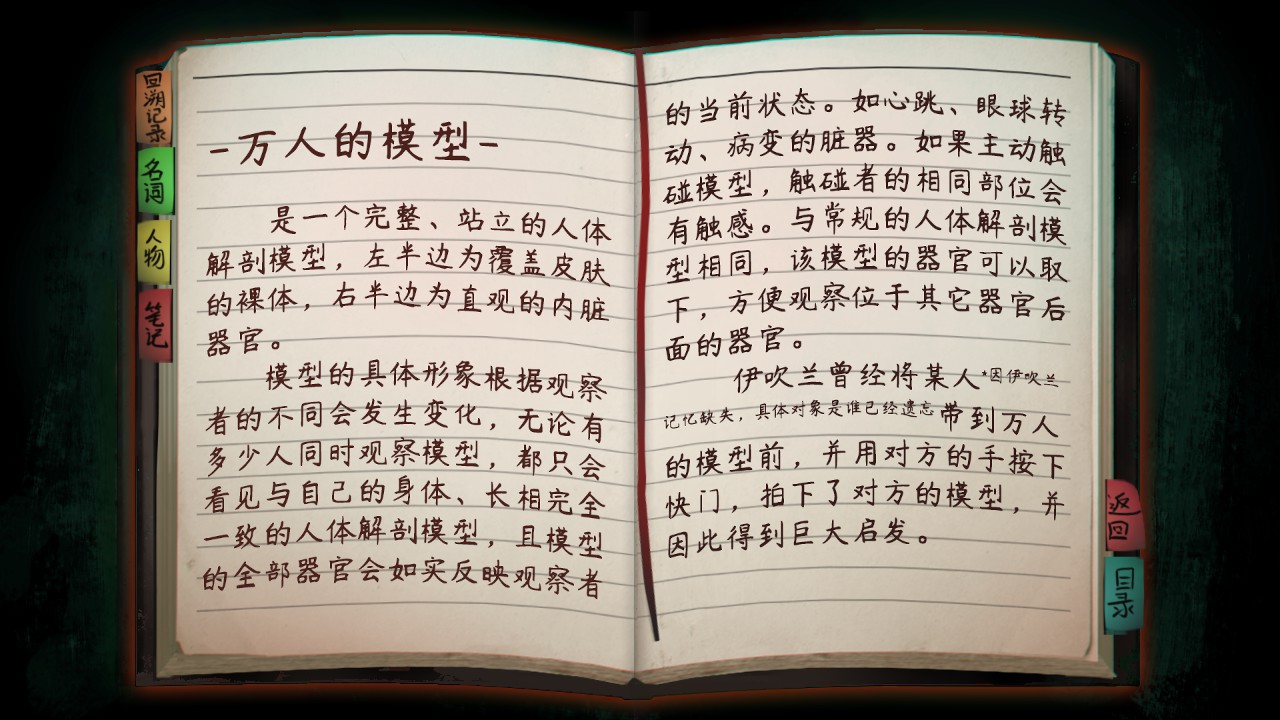 回溯记录
名词
人物
笔记
-万人的模型-
是一个完整、站立的人体
解剖模型，左半边为覆盖皮肤
的裸体，右半边为直观的内脏
器官。
模型的具体形象根据观察
者的不同会发生变化，无论有
多少人同时观察模型，都只会
看见与自己的身体、长相完全
一致的人体解剖模型，且模型
的全部器官会如实反映观察者
的当前状态。如心跳、眼球转
动、病变的脏器。如果主动触
碰模型，触碰者的相同部位会
有触感。与常规的人体解剖模
型相同，该模型的器官可以取
下，方便观察位于其它器官后
面的器官。
伊吹兰曾经将某人*因伊吹兰
记忆缺失，具体对象是谁已经遗忘带到万人
的模型前，并用对方的手按下
快门，拍下了对方的模型，并
因此得到巨大启发。
返回
目录